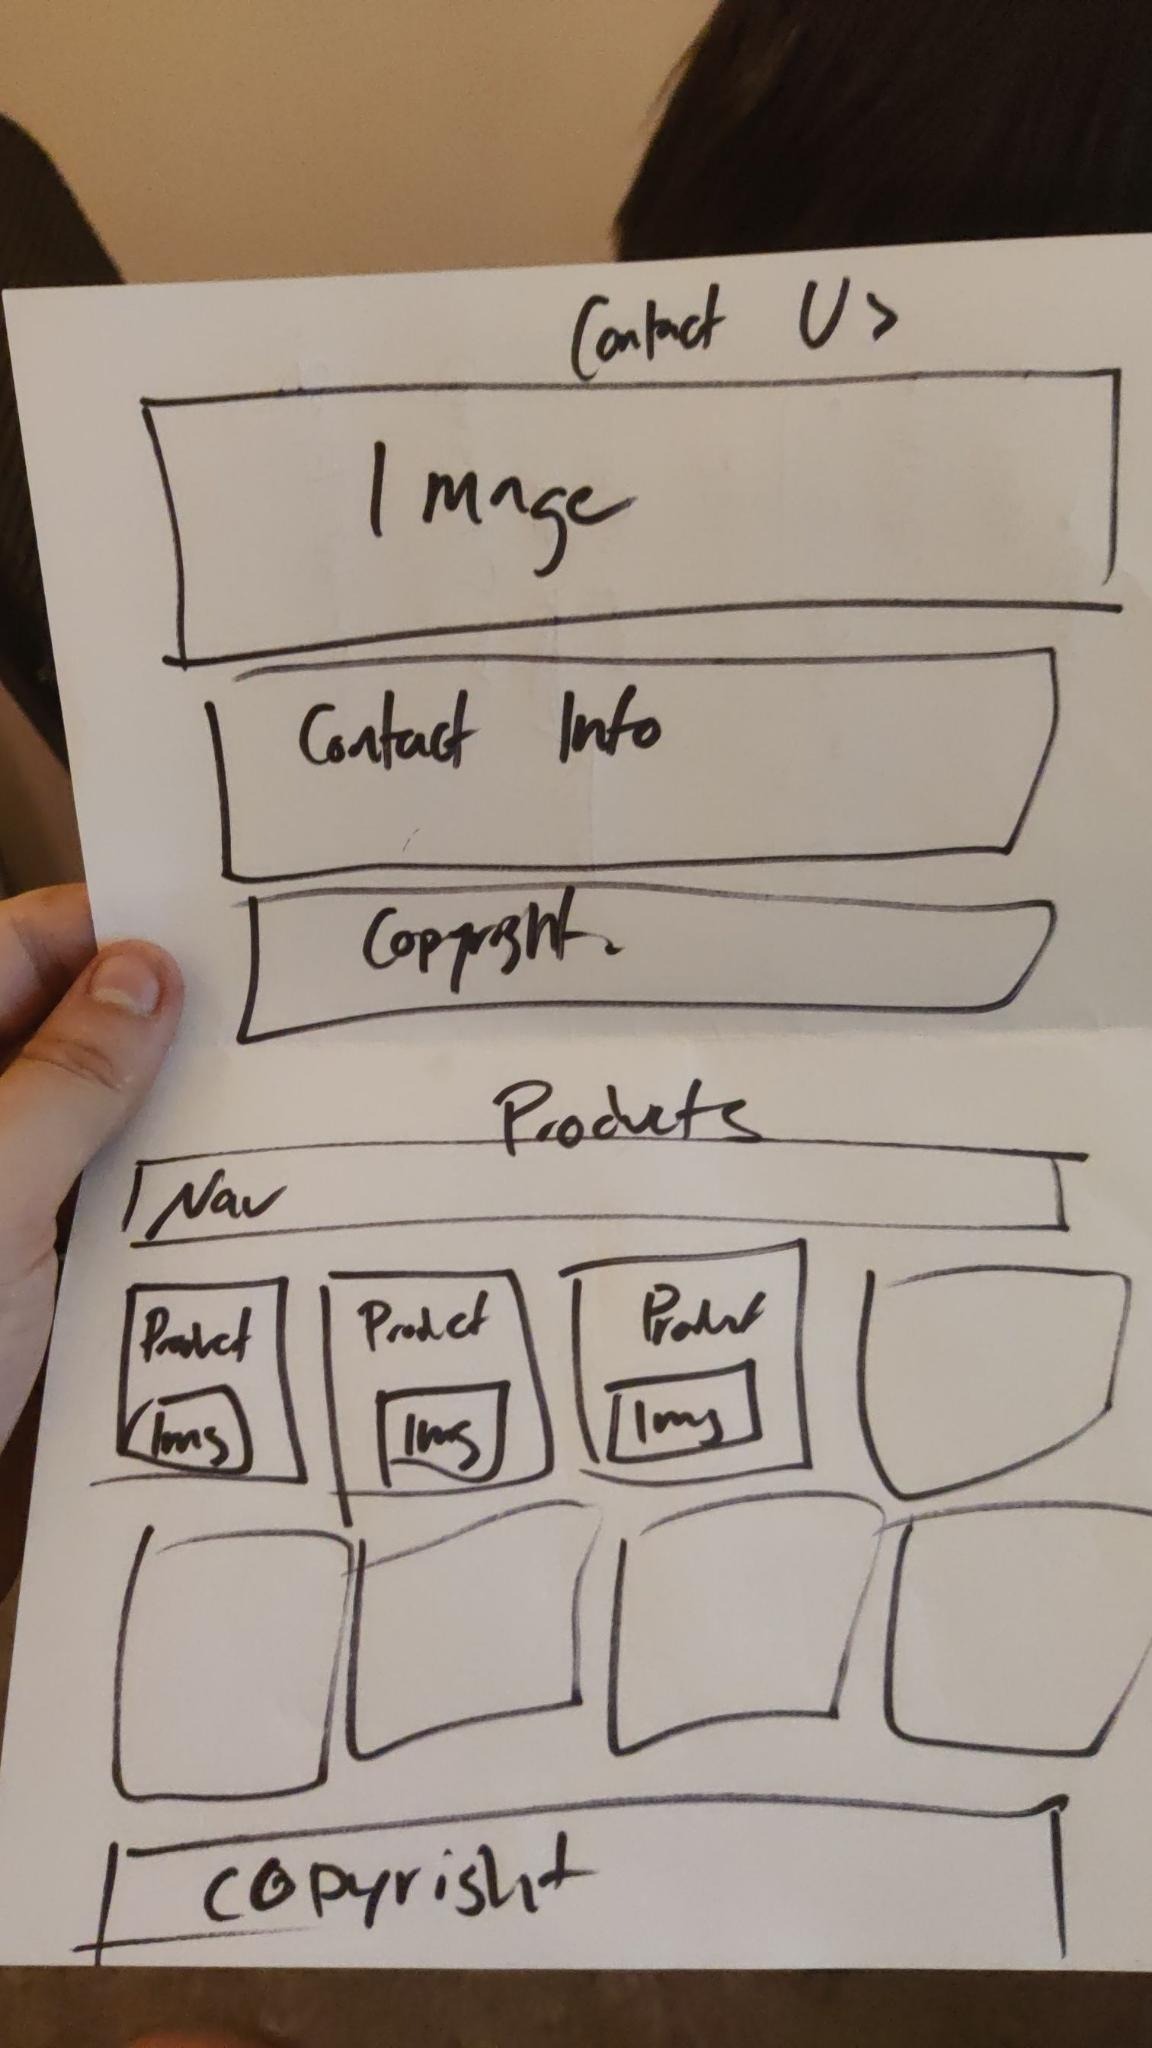 Contact Us
Image
Contact Info
Copyright.
Products
Nav
Product Product Product
Img Img Img
COPyright